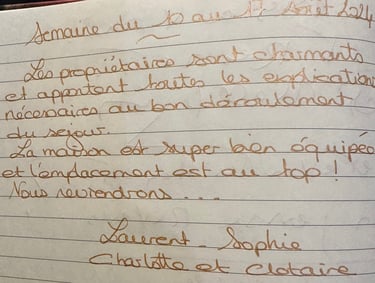 Semaine du 10 au 17 Août 2024
Les propriétaires sont charmants
et apportent toutes les explications
nécessaires au bon déroulement
du séjour.
La maison est super bien équipée
et l'emplacement est au top !
Nous reviendrons ....
Laurent - Sophie
Charlotte et Clotaire